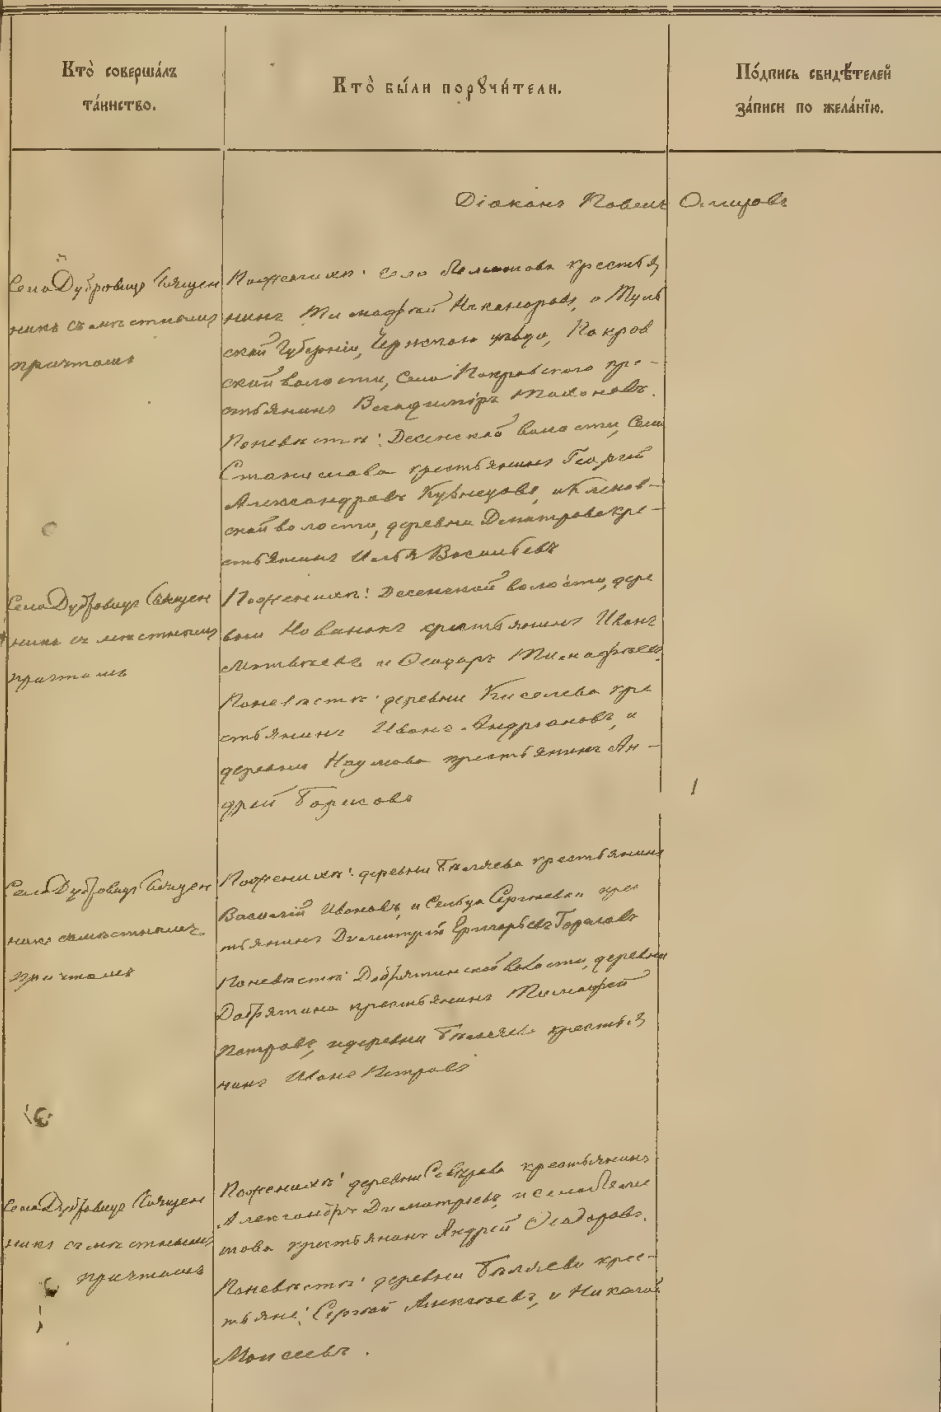 Кто̀ соверша́лъ
та́инство.
Кто̀ бы́ли порꙋчи́тели.
По́дпись свидѣ́телей
за́писи по жела́нїю.
Діаконъ Павелъ
Села Дубровицъ Священ
никъ съ мѣстнымъ
причтомъ
По женихѣ: села крестья
нинъ Тимофей Никаноровъ, и Туль
ской Губерніи, уѣзда, Покров
ской волости, села Покровского кре-
стьянинъ Владиміръ
По невѣстѣ: Десенской волости, села
Станислава крестьянинъ Георгій
Александровъ Кузнецовъ, и Кленов-
ской волости, деревни Дмитрова кре-
стьянинъ Илья Васильевъ
Села Дубровицъ Священ
никъ съ мѣстнымъ
причтомъ
По женихѣ: Десенской волости, дере
вни крестьянинъ Иванъ
Матвѣевъ и Ѳеодоръ Тимофѣевъ
По невѣстѣ: деревни Киселева кре
стьянинъ Иванъ Андріановъ, и
деревни Наумова крестьянинъ Ан-
дрей Борисовъ
Села Дубровицъ Священ
никъ съ мѣстнымъ
причтомъ
По женихѣ: деревни Бѣляева крестьянинъ
Василій Ивановъ, и Сельца Сергіевки кре
тьянинъ Димитрій Григорьевъ
По невѣстѣ: Добрятинской волости, деревни
Добрятина крестьянинъ Тимофей
Петровъ, и деревни Бѣляева крестья
нинъ Иванъ Петровъ
Села Дубровицъ Священ
никъ съ мѣстнымъ
причтомъ
По женихѣ: деревни крестьянинъ
Александръ Димитріевъ, и села
крестьянинъ Андрей Ѳеодоровъ.
По невѣстѣ: деревни Бѣляева крес-
тьяне: Сергѣй Алексѣевъ, и Николай
Моисеевъ.